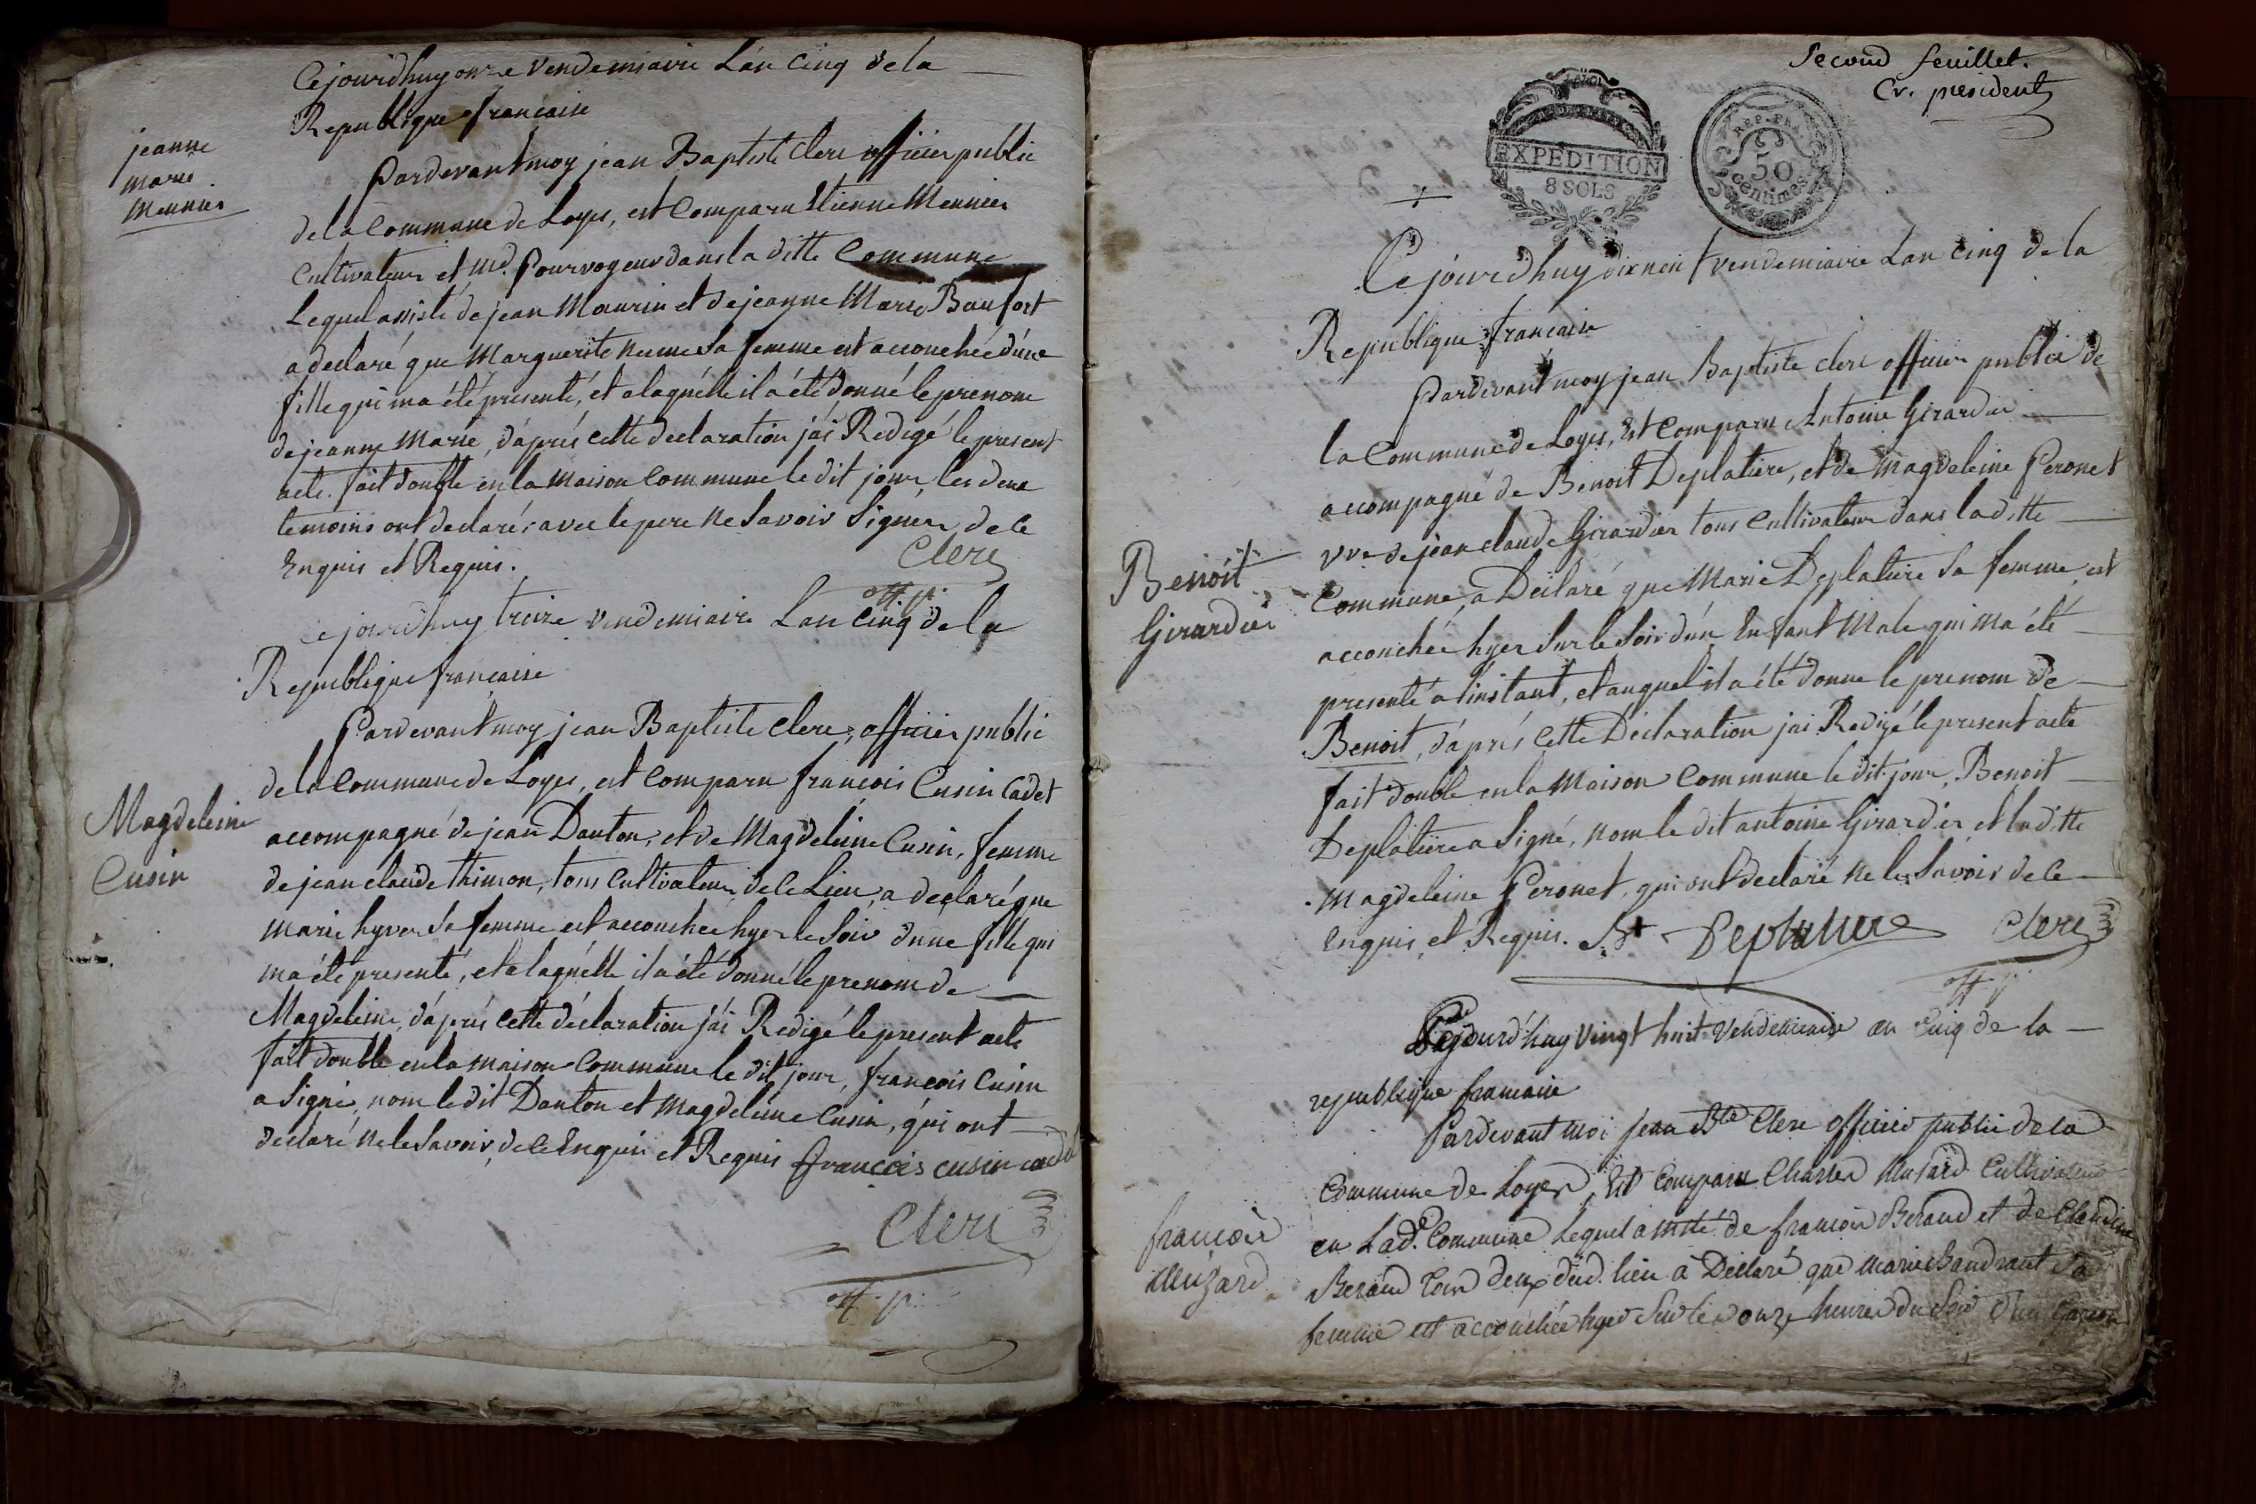 Cejourdhuy onze vendemiaire L'an cinq de la
Republique francaise
jeanne
marie
Meunier
Pardevant moy jean Baptiste Clerc officier public
de la Commune de Loyes, est Comparu Etienne Meunier
Cultivateur et md. Pourvoyeur dans la ditte Commune
Lequel assisté de jean Maurin et de jeanne Marie Baufort
a declaré que Marguerite sa femme est accouchée d'une
fille qui ma été presenté, et a laquelle il a été donné le prenom
de jeanne Marie, d'aprés cette declaration j'ai Redigé le present
acte fait double en la Maison Commune le dit jour, les deux
temoins ont declarés avec le pere ne Savoir Signer de Ce
Enquis et Requis.
Clerc
off. p.
Cejourdhuy treize vendemiaire Lan Cinq de la
Republique francaise
Pardevant moy jean Baptiste Clerc, officier public
de la Commune de Loyes, est Comparu francois Cusin Cadet
Magdeleine
Cusin
accompagné de jean Danton, et de Magdeleine Cusin, femme
de jean claude thimon, tous Cultivateurs de Ce Lieu, a declaré que
Marie hyver Sa femme est accouchée hyer le Soir d'une fille qui
ma été presenté, et a laquelle il a été donné le prenom de
Magdeleine, d'aprés Cette déclaration j'ai Redigé le present acte
fait double en la maison Commune le dit jour, francois Cusin
a Signé, nom le dit Danton et Magdeleine Cusin, qui ont
declaré ne le Savoir, de Ce Enquis et Requis francois cusin cadet
Clerc
off. p.
Second feuillet.
Cr. président
EXPEDITION
8 SOLS
REP. FRA.
50
centimes
Cejourdhuy dix neuf vendemiaire Lan Cinq de la
Republique francaise
Pardevant moy jean Baptiste clerc officier public de
la Commune de Loyes, Est Comparu Antoine Girardier
accompagné de Benoit Deplatiere, et de Magdeleine Peronet
vve de jean claude Girardier tous Cultivateur dans la ditte
Benoit
Girardier
Commune, a Declaré que Marie Deplatiere Sa femme, est
accouchée hyer Sur le Soir d'un Enfant Male qui ma été
presenté a linstant, et auquel il a été donné le prenom de
Benoit, d'aprés Cette Déclaration jai Redigé le present acte
fait double en la Maison Commune le dit jour, Benoit
Deplatiere a Signé, nom le dit antoine Girardier et la ditte
Magdeleine Peronet, qui ont declaré ne le Savoir de Ce
Enquis et Requis. Bt Deplatiere Clerc
off. p.
Cejourd'huy vingt huit vendemiaire an Cinq de la
republique francaise
Pardevant moi jean Bte Clerc officier public de la
Commune de Loyes, Est Comparu Charles Musard Cultivateur
francois
Musard
en Lade. Commune Lequel assisté de francois Beraud et de Claudine
Beraud tous deux dud. lieu a Déclaré que marie Baudrant Sa
femme est accouchée hyer Sur les onze heures du Soir d'un Garcon